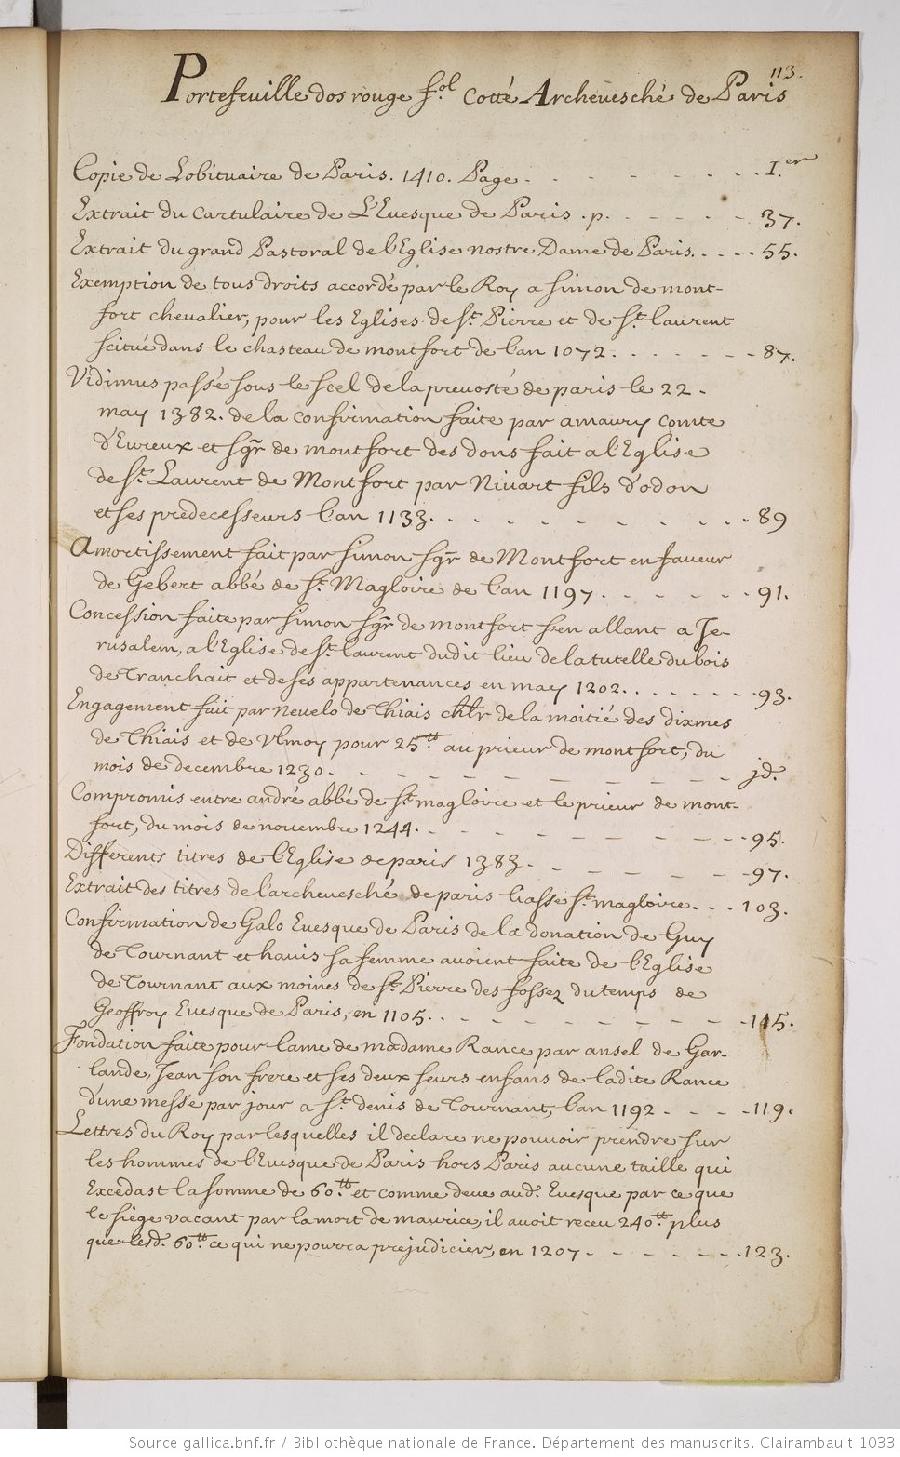 113.
Portefeuille dos rouge fol. cotté Archevesché de Paris
Copie de Lobituaire de Paris. 1410. Page - - - - - - 1.er
Extrait du Cartulaire de L'Evesque de Paris . p. - - - - - 37.
Extrait du grand Pastoral de l'Eglise nostre Dame de Paris. . . . . 55.
Exemption de tous droits accordé par le Roy a simon de mont-
fort chevalier, pour les Eglises de St. Pierre et de St. laurent
scitué dans le chasteau de montfort de l'an 1072. - - - - - - 87.
Vidimus passé sous le scel de la prevosté de paris le 22.
may 1382. de la confirmation faite par amaury comte
d'Evreux et sgr. de montfort des dons fait a l'Eglise
de St. Laurent de Montfort par Nivart fils d'odon
et ses predecesseurs l'an 1133. - - - - - - - - - 89
Amortissement fait par simon sgr. de Montfort en faveur
de Gebert abbé de St. Magloire de l'an 1197. - - - - - - 91.
Concession faite par simon sgr de montfort s'en allant a Je-
rusalem, a l'Eglise de St. laurent dudit lieu de la tutelle du bois
de Tranchait et de ses appartenances en may 1202. . . . . . . . 93.
Engagement fait par Nevelo de Thiais chlr de la moitié des dixmes
de Thiais et de Vlmoy pour 25tt au prieur de montfort, du
mois de decembre 1230. - - - - - - - - - - - jd.
Compromis entre andré abbé de St. magloire et le prieur de mont-
fort, du mois de novembre 1244. - - - - - - - - - 95.
Differents titres de l'Eglise de paris 1383. - - - - - - 97.
Extrait des titres de l'archevesché de paris liasse St. magloire. . . . 103.
Confirmation de Galo Evesque de Paris de la donation de Guy
de Tournant et havis sa femme avoient faite de l'Eglise
de Tournant aux moines de St. Pierre des fossez du temps de
Geoffroy Evesque de Paris, en 1105. . - - - - - - - - 115.
Fondation faite pour l'ame de madame Rance par ansel de Gar-
lande, Jean son frere et ses deux seurs enfans de ladite Rance
d'une messe par jour a St. denis de Tournant, l'an 1192 - - - - 119.
Lettres du Roy par lesquelles il declare ne pouvoir prendre sur
les hommes de l'Evesque de Paris hors Paris aucune taille qui
Excedast la somme de 60.tt et comme deve aud. Evesque par ce que
le siège vacant par la mort de maurice, il avoit receu 240.tt plus
que lesd. 60.tt ce qui ne pourra prejudicier, en 1207. - - - - - - 123.
Source gallica.bnf.fr / Bibliothèque nationale de France. Département des manuscrits. Clairambault 1033